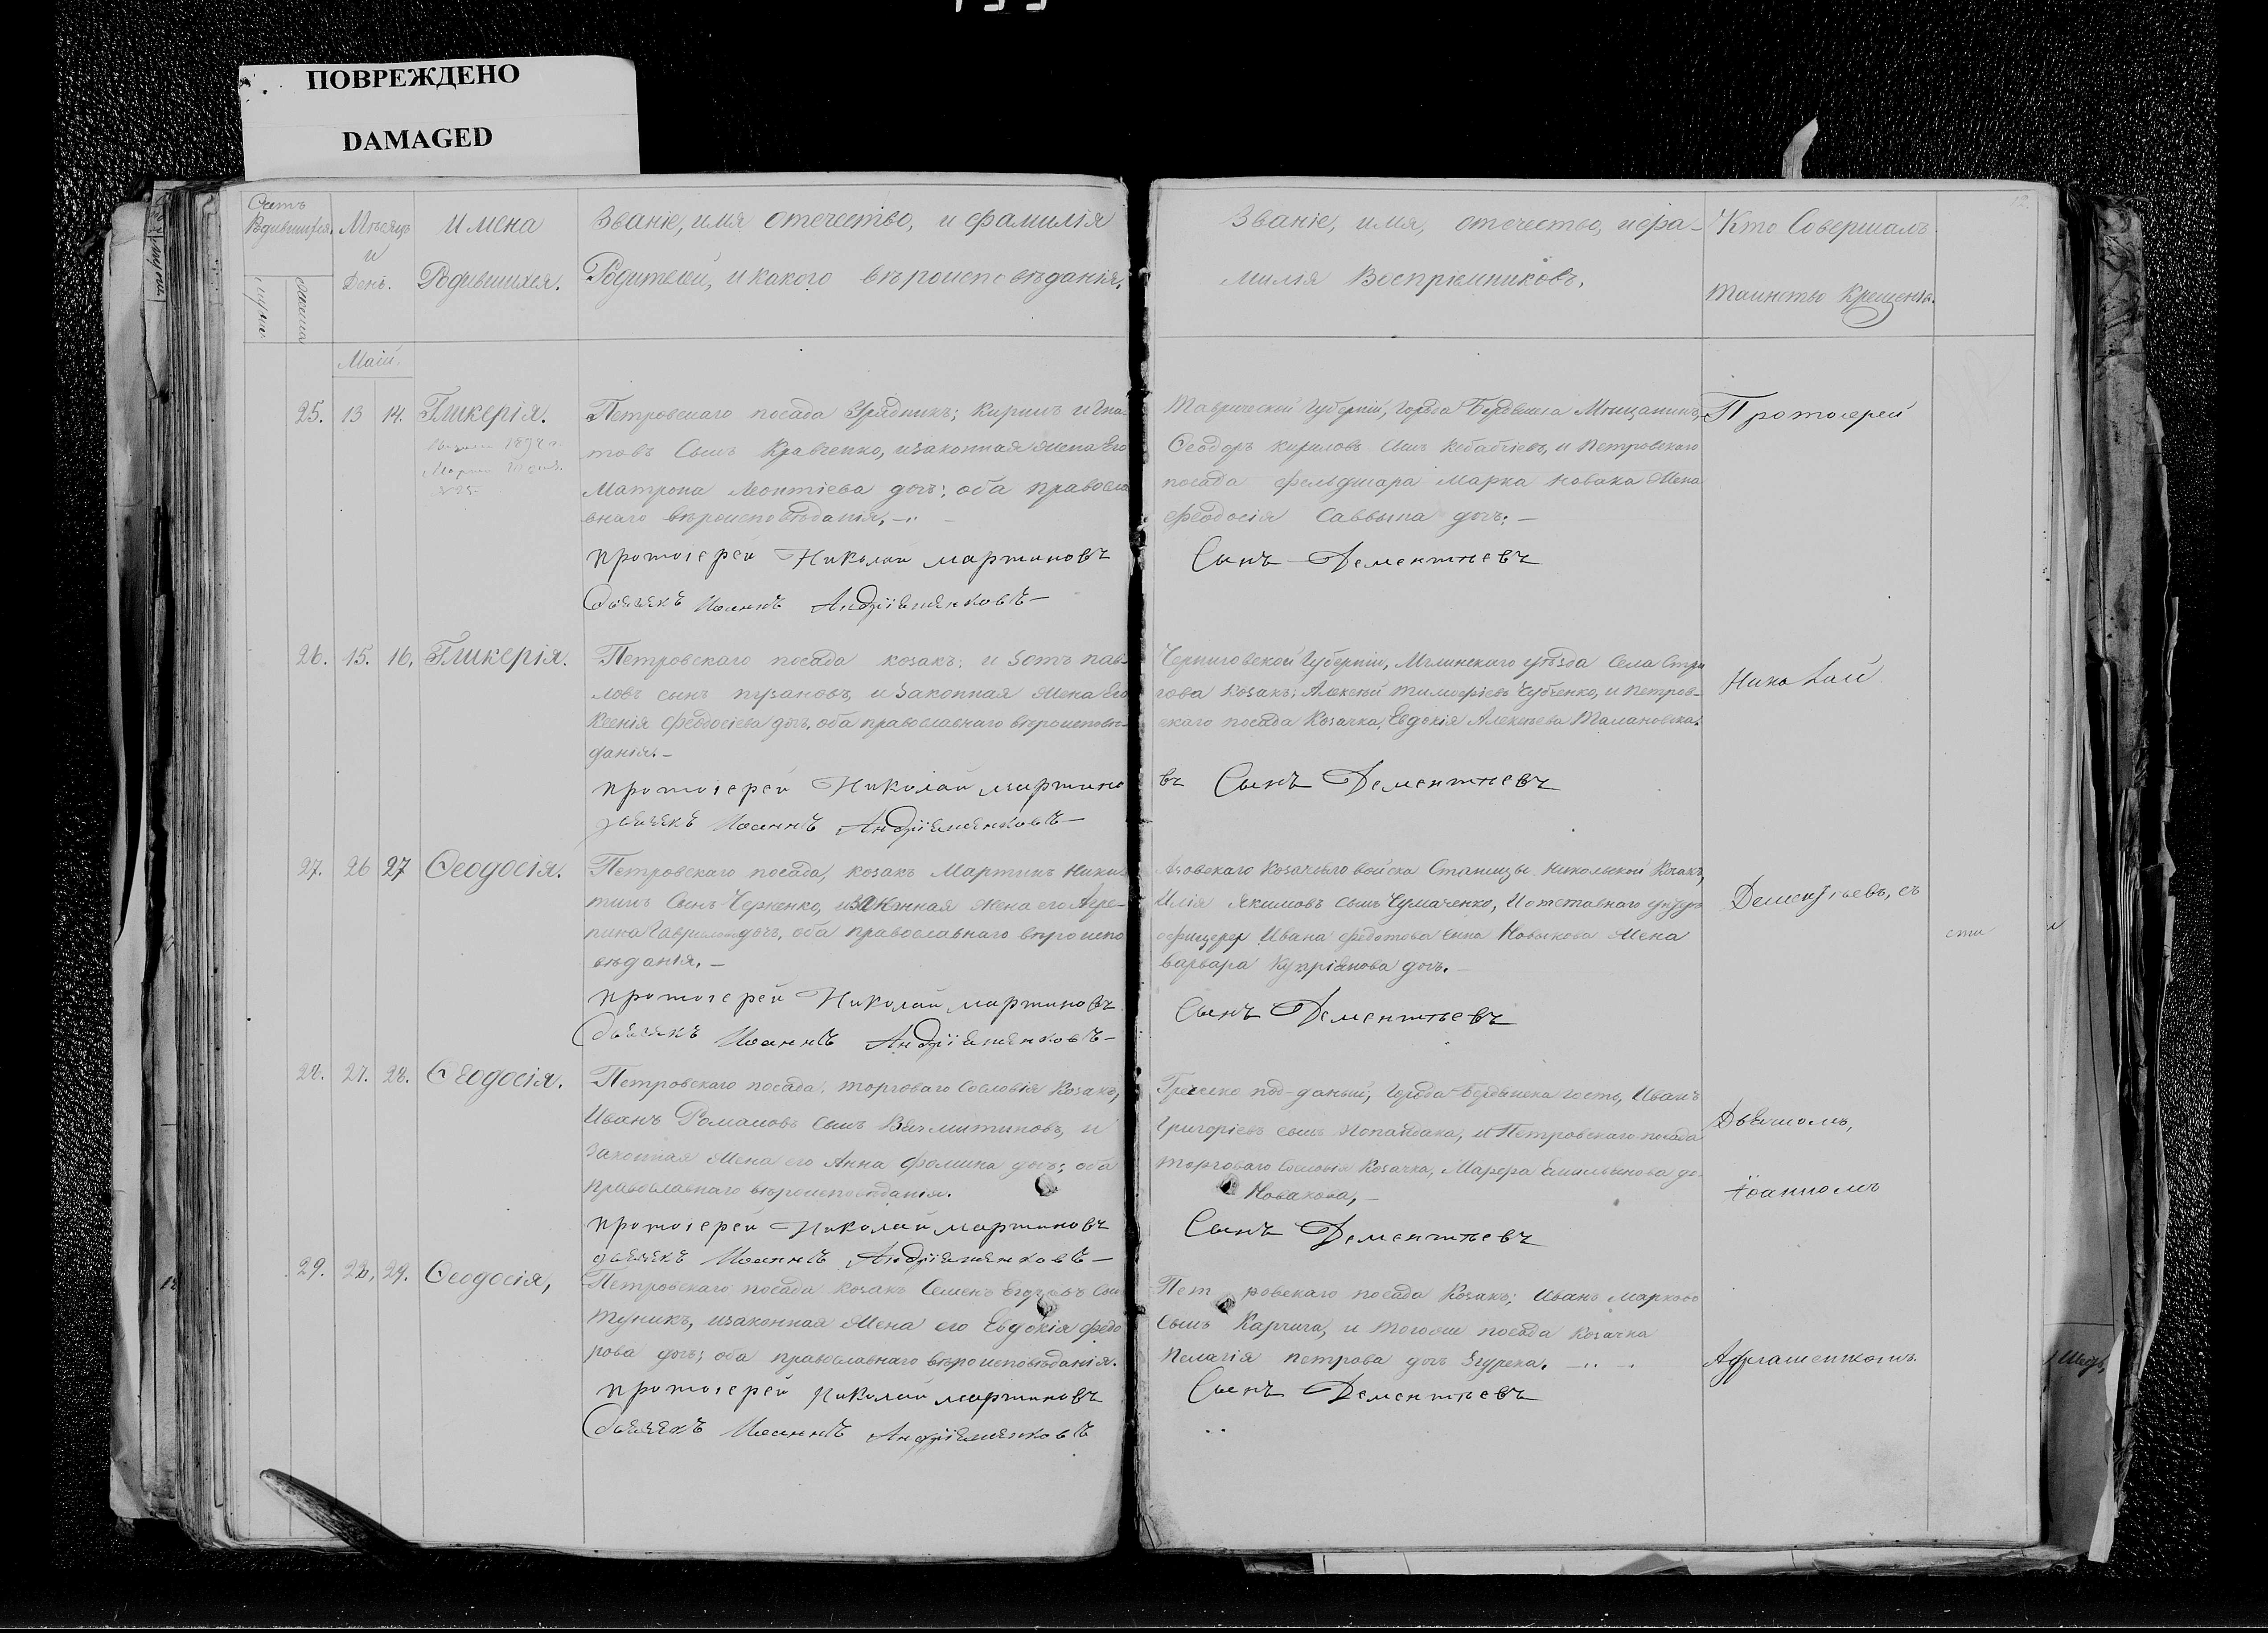 ПОВРЕЖДЕНО
DAMAGED
Счетъ Родившихся.
Мѣсяцъ и День.
Имена Родившихся.
Званіе, имя отечество, и фамилія
Родителей, и какого вѣроисповѣданія.
Званіе, имя, отечество, и фа-
милія Воспріемниковъ.
Кто Совершалъ
таинство Крещенія.
Маій.
25. 13 14. Гликерія.
Петровскаго посада Урядникъ; Кирилъ Игна-
товъ Сынъ Кравченко, изаконная жена Его
Матрона Леонтіева дочъ; оба православ
внаго вѣроисповѣданія. —
протоіерей Николай мартиновъ
Дьячекъ Иоаннъ
Таврической Губерніи, города Бердянска Мѣщанинъ,
Ѳеодоръ кириловъ сынъ Кебабчіевъ, и Петровскаго
посада фельдшара марка новака жена
феодосія Саввына дочъ; —
Сынъ Дементиевъ
Протоіерей
26. 15. 16. Гликерія.
Петровскаго посада козакъ; изотъ пав-
ловъ сынъ пузановъ, изаконная жена Его
Ксенія феодосіева дочъ, оба православнаго вѣроисповѣ-
данія. —
протоіерей Николай мартино
дьячекъ Иоаннъ
Черниговской Губерніи, Мглинскаго уѣзда Села Стри
гова козакъ; Алексѣй тимофѣевъ Чубченко, и петров-
скаго посада Козачка, Евдокія Алексѣева
въ Сынъ Дементиевъ
Николай
27. 26 27 Ѳеодосія.
Петровскаго посада, козакъ Мартинъ Ники-
тинъ Сынъ Черненко, изаконная жена его Агре-
пина Гаврилова дочъ, оба православнаго вѣроиспо
вѣданія. —
протоіерей Николай мартиновъ
Дьячекъ Иоаннъ
Азовскаго Козачьяго войска Станицы Никольской Козакъ,
Илія Якимовъ сынъ Чумаченко, Иотставнаго ундеръ
офицера Ивана федотова сына Новыкова жена
варвара Купріянова дочъ. —
Сынъ Дементьевъ
Дементьевъ, съ
28. 27. 28. Ѳеодосія.
Петровскаго посада, торговаго Сословія Козакъ,
Иванъ Романовъ сынъ Вахмитиновъ, и
Законная жена его Анна фомина дочъ; оба
православнаго вѣроисповѣданія.
протоіерей Николай мартиновъ
дьячекъ Иоаннъ
Греческо под-даный, города Бердянска гость, Иванъ
Григоріевъ сынъ и Петровскаго посада
торговаго Сословія Козачка, Марфа Емильянова до-
Новакова, —
Сынъ Дементиевъ
Дьячкомъ,
Іоанномъ
29. 28, 29. Ѳеодосія,
Петровскаго посада козакъ Семенъ Сын
изаконная жена его Евдокія федо
рова дочъ; оба православнаго вѣроисповѣданія.
протоіерей Николай мартиновъ
Дьячекъ Иоаннъ
Петровскаго посада Козакъ; Иванъ марковъ
Сынъ Карчига, и тогоже посада козачка
Пелагія петрова дочъ
Сынъ Дементьевъ